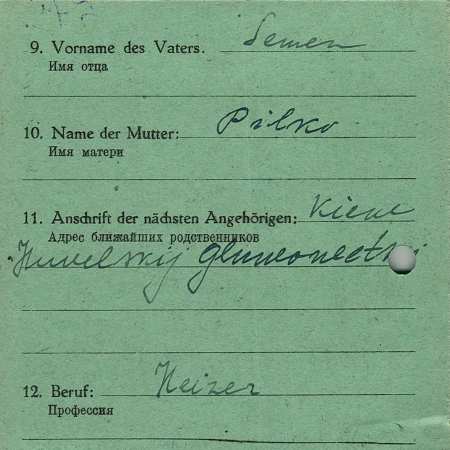 9. Vorname des Vaters. Semen
Имя отца
10. Name der Mutter: Pilko
Имя матери
11. Anschrift der nächsten Angehörigen: Kiew
Адрес ближайших родственников
12. Beruf: Heizer
Профессия